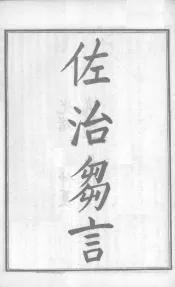 佐治芻言